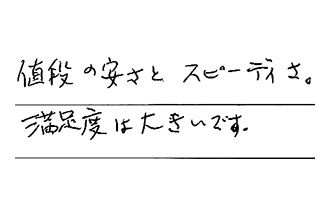 値段の安さと スピーディさ。
満足度は大きいです。